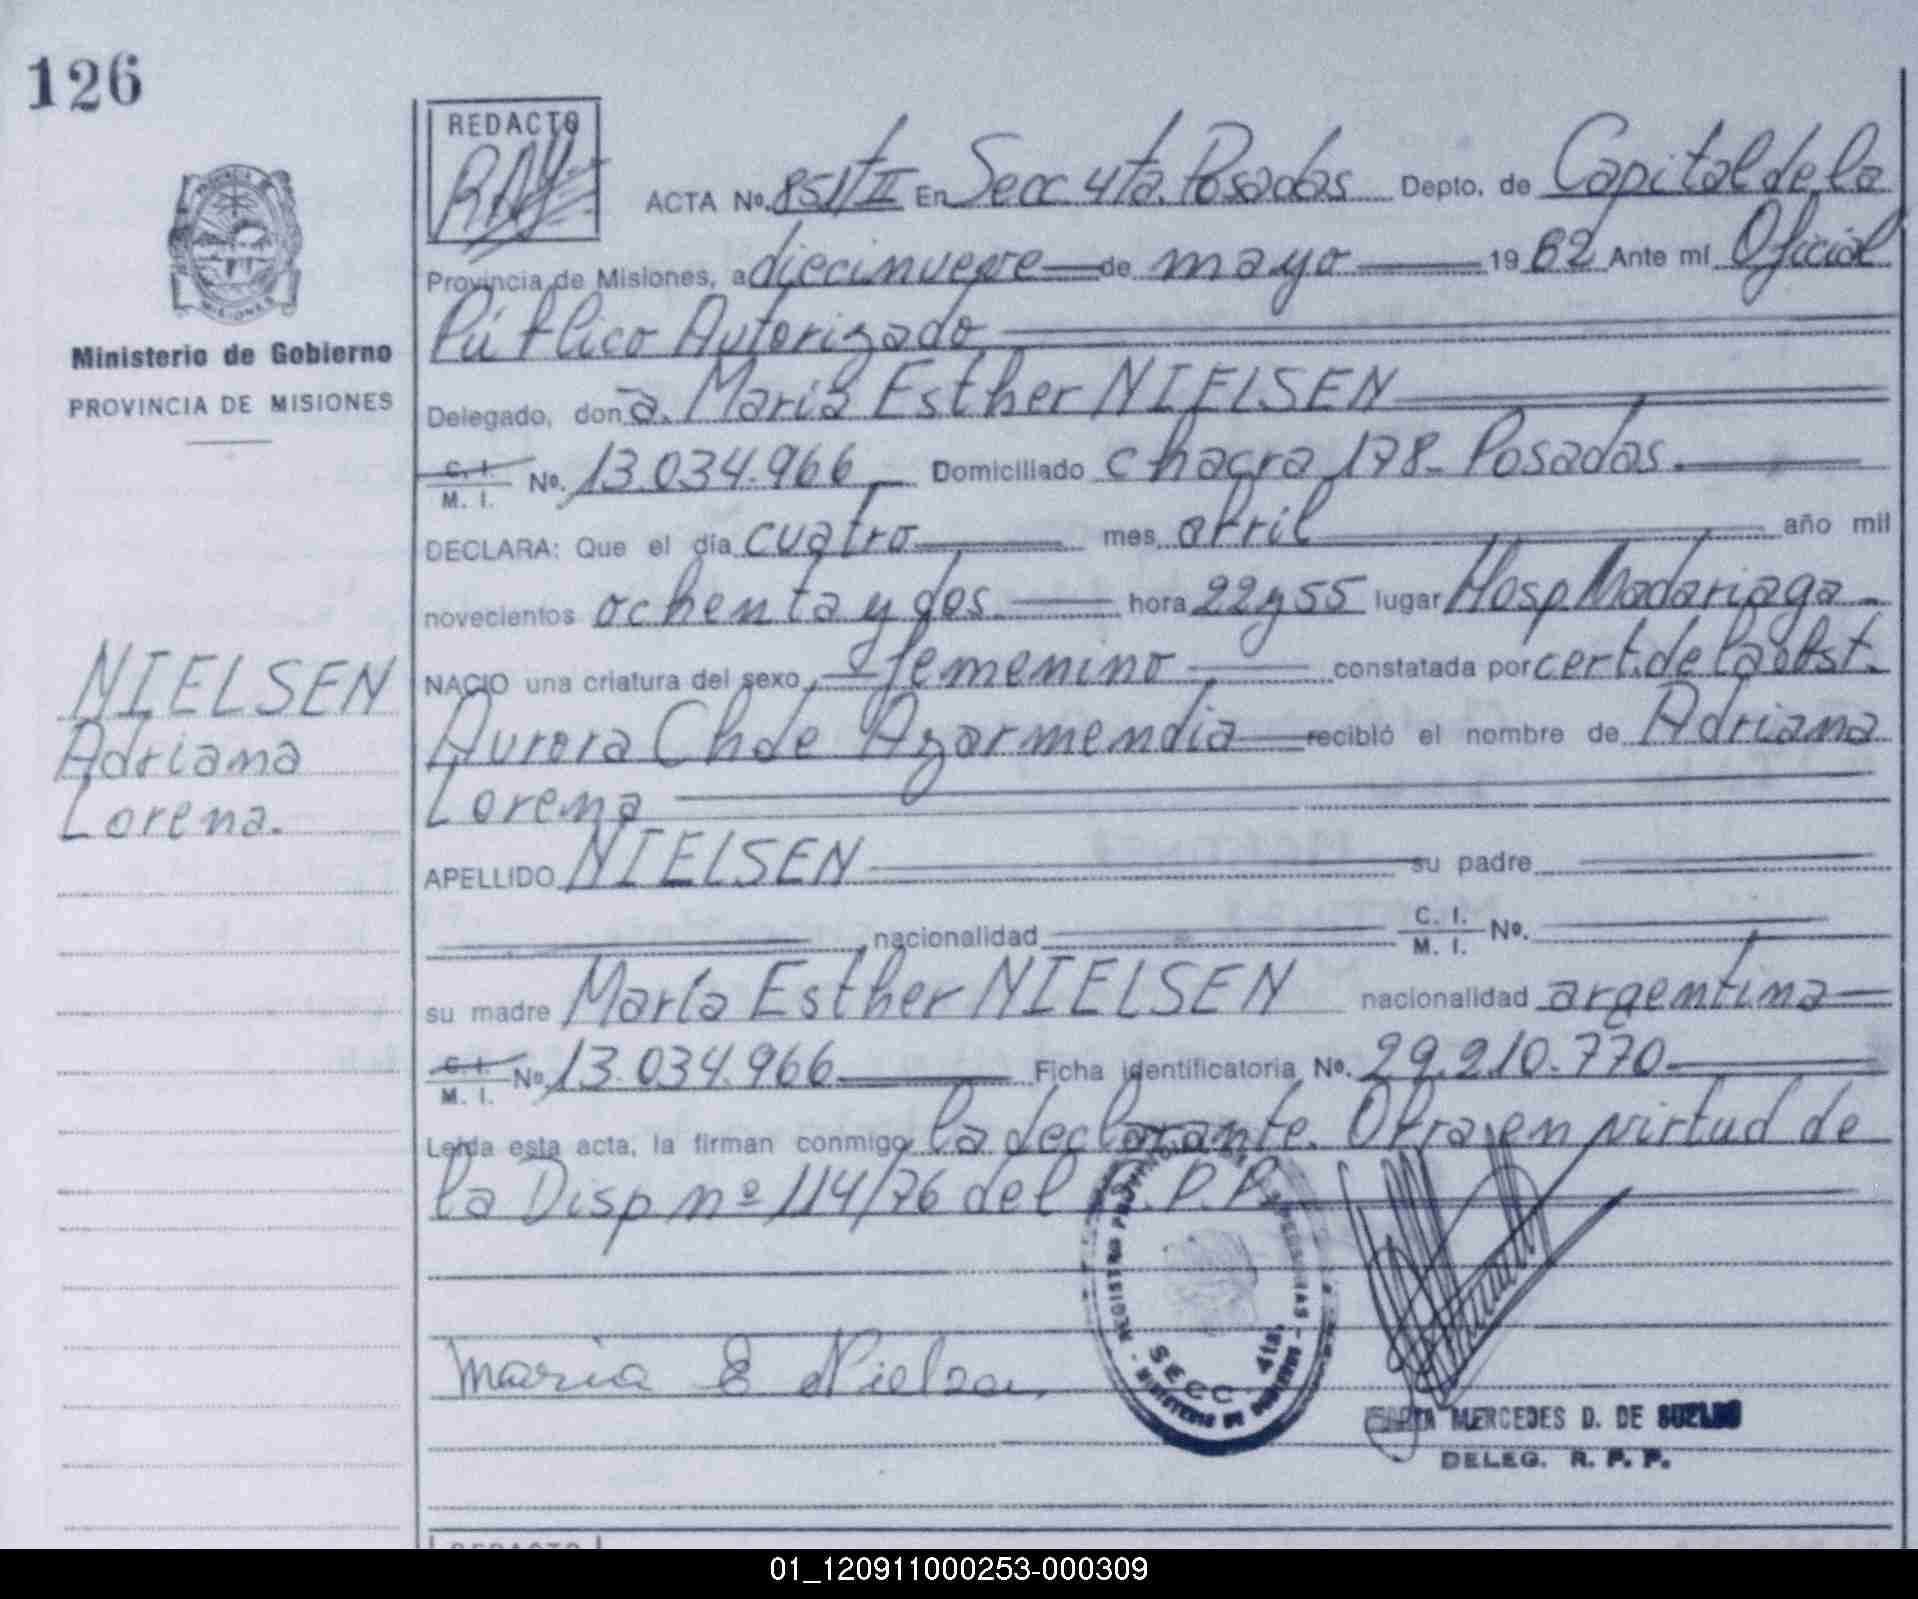 126
REDACTO
ACTA Nº. 851/II En Secc 4ta. Posadas Depto. de Capital de la
Provincia de Misiones, a diecinueve de mayo 1982 Ante mí Oficial
Público Autorizado
Ministerio de Gobierno
PROVINCIA DE MISIONES
Delegado, don a. María Esther NIELSEN
C. I. M. I. Nº. 13.034.966 Domiciliado chacra 178 - Posadas.
DECLARA: Que el día cuatro mes abril año mil
novecientos ochenta y dos hora 22 y 55 lugar Hosp Madariaga
NACIO una criatura del sexo femenino constatada por cert. de la obst.
Aurora Ch de Azarmendia recibió el nombre de Adriana
Lorena
NIELSEN
Adriana
Lorena.
APELLIDO NIELSEN su padre
nacionalidad C. I. M. I. Nº.
su madre María Esther NIELSEN nacionalidad argentina
C. I. M. I. Nº. 13.034.966 Ficha identificatoria No. 29.210.770
Leída esta acta, la firman conmigo la declarante. Obra en virtud de
la Disp nº 114/76 del R.P.P.
María E Nielsen
REGISTRO PROVINCIAL DE LAS PERSONAS - MINISTERIO DE GOBIERNO -
SECC. 4ta.
MERCEDES D. DE
DELEG. R. P. P.
REDACTO
01_120911000253-000309